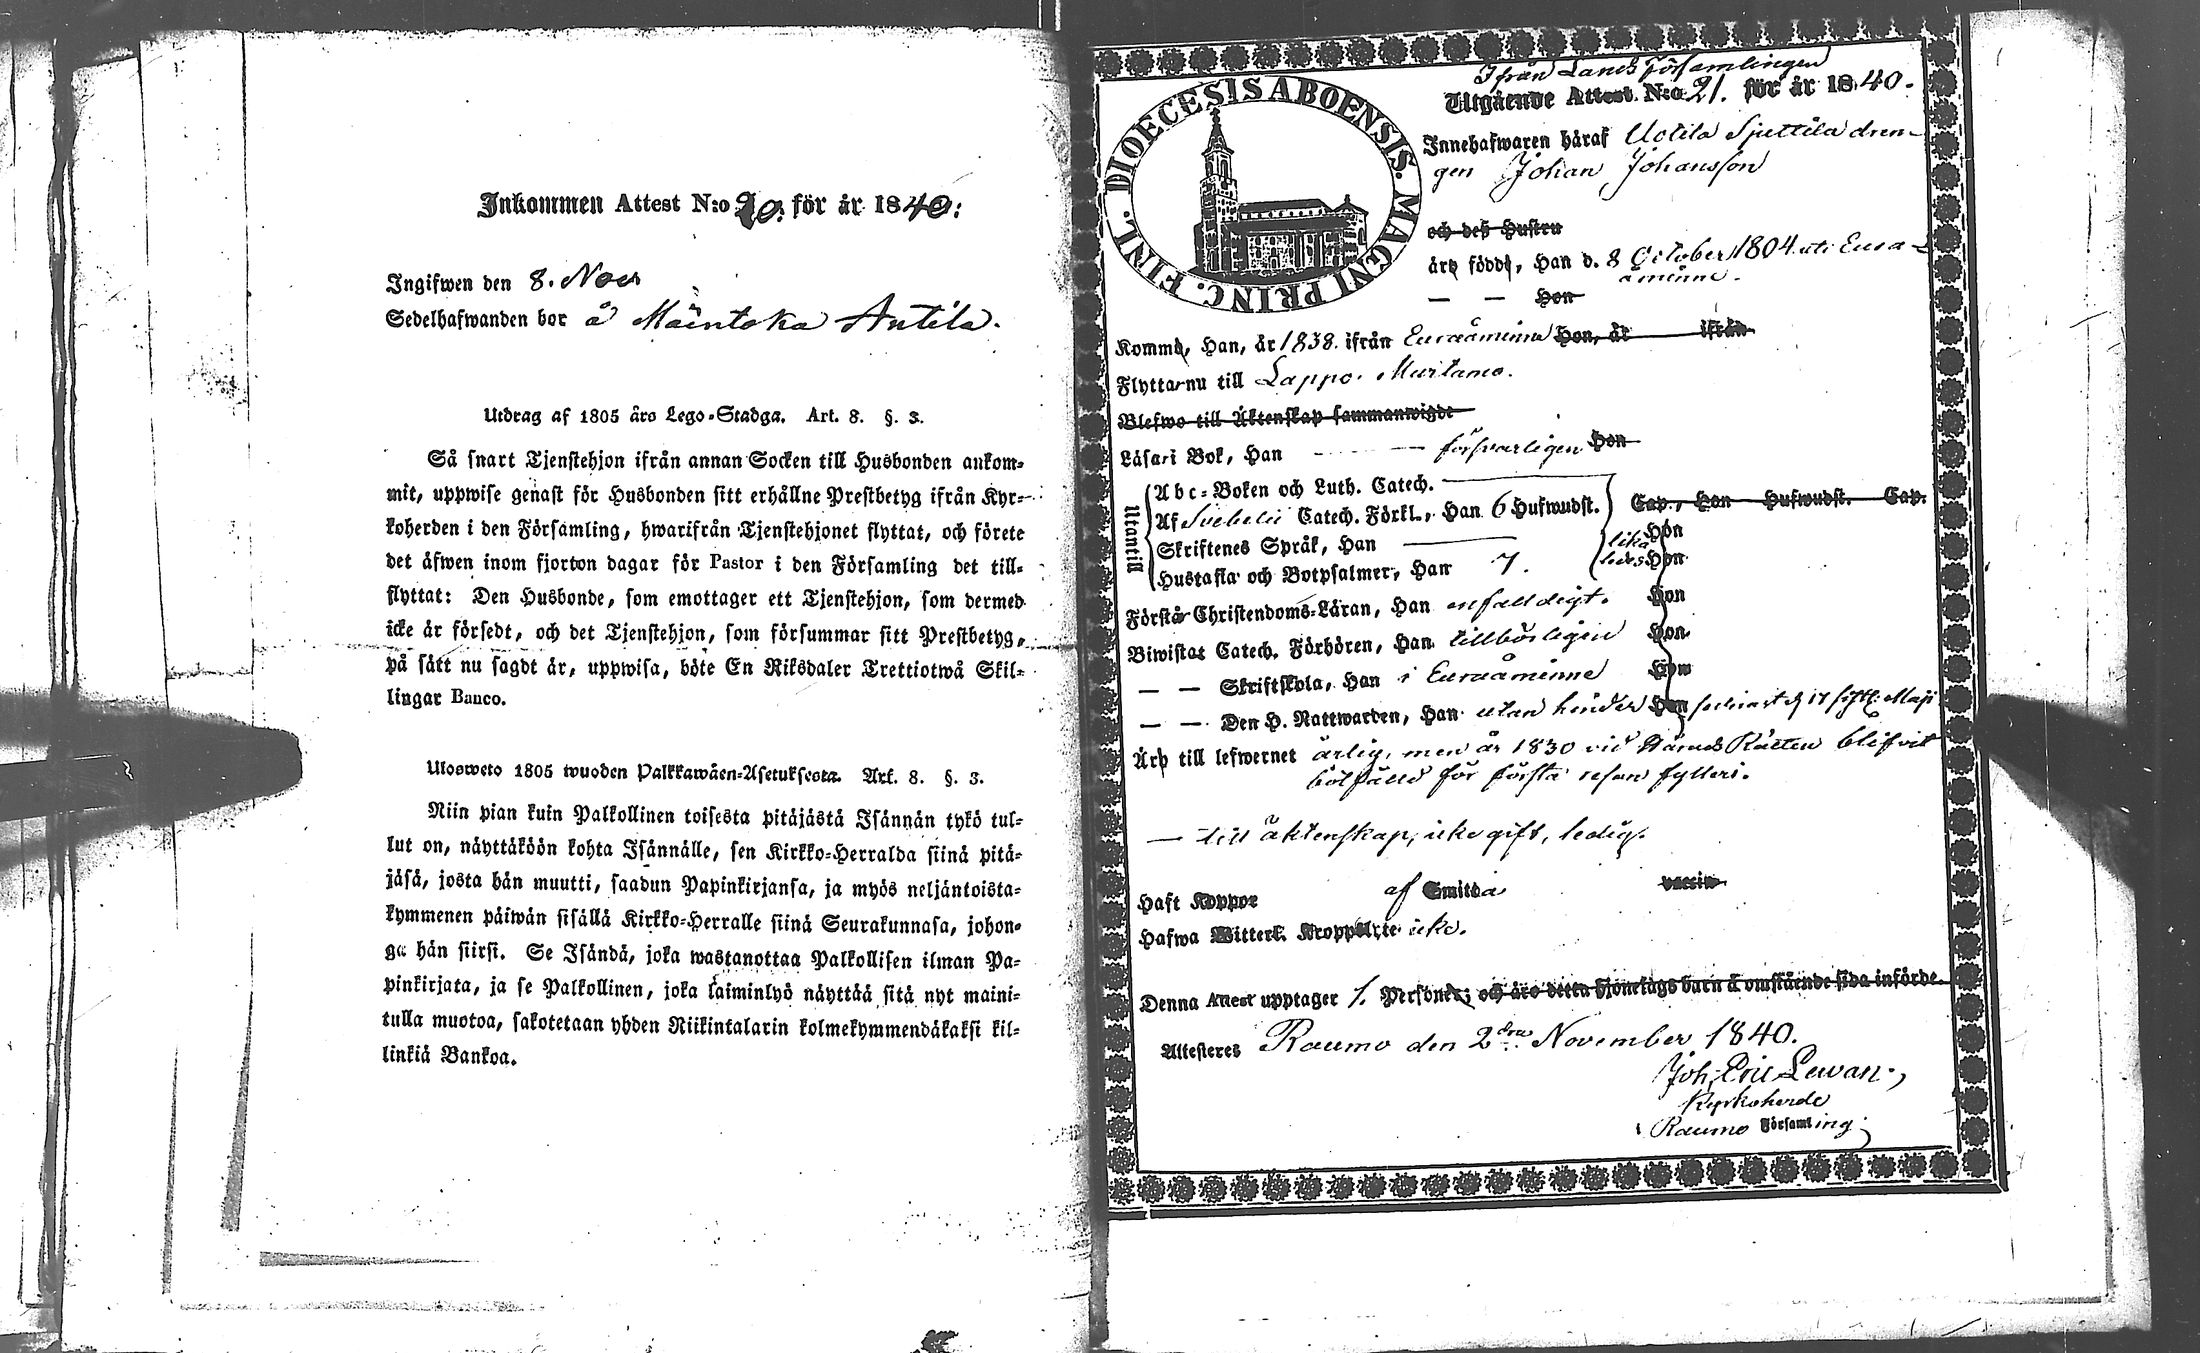 Inkommen Attest N:o 20. för år 1840:
Ingifwen den 8. Nov
Sedelhafwanden bor å Mäntaka Antila.
Utdrag af 1805 års Lego-Stadga. Art. 8. §. 3.
Så snart Tjenstehjon ifrån annan Socken till Husbonden ankom-
mit, uppwise genast för Husbonden sitt erhållne Prestbetyg ifrån Kyr-
koherden i den Församling, hwarifrån Tjenstehjonet flyttat, och förete
det äfwen inom fjorton dagar för Pastor i den Församling det till-
flyttat: Den Husbonde, som emottager ett Tjenstehjon, som dermed
icke är försedt, och det Tjenstehjon, som försummar sitt Prestbetyg,
på sätt nu sagdt är, uppwisa, böte En Riksdaler Trettiotwå Skil-
lingar Banco.
Ulosweto 1805 wuoden Palkkawäen-Asetuksesta. Art. 8. §. 3.
Niin pian kuin Palkollinen toisesta pitäjästä Isännän tykö tul-
lut on, näyttäköön kohta Isännälle, sen Kirkko-Herralda siinä pitä-
jäsä, josta hän muutti, saadun Papinkirjansa, ja myös neljäntoista-
kymmenen päiwän sisällä Kirkko-Herralle siinä Seurakunnasa, johon-
ga hän siirsi. Se Isändä, joka wastanottaa Palkollisen ilman Pa-
pinkirjata, ja se Palkollinen, joka laiminlyö näyttää sitä nyt maini-
tulla muotoa, sakotetaan yhden Riikintalarin kolmekymmendäkaksi kil-
linkiä Bankoa.
DIOECESIS ABOENSIS. MAGNI PRINC. FINL.
Ifrån Lands församlingen
Utgående Attest N:o 21. för år 1840.
Innehafwaren häraf Uotila Sjuttila dren-
gen Johan Johansson
och deß Hustru
äro födde, Han d. 8 October 1804 uti Eura-
åminne.
— — Hon
Komma, Han, år 1838. ifrån Euraåminne Hon, år ifrån
Flytta nu till Lappo. Murtamo.
Blefwo till Äktenskap sammanwigde
Läsa i Bok, Han — försvarligen Hon
Utantill
Abc-Boken och Luth. Catech.
Af Svebelii Catech. Förkl., Han 6 Hufwudst. Cap., Han Hufwudst. Cap.
Skriftenes Språk, Han — lika Hon
Hustafla och Botpsalmer, Han 7. ledes Hon
Förstår Christendoms-Läran, Han enfalldigt. Hon
Biwistat Catech. Förhören, Han tillbörligen Hon
— — Skriftskola, Han i Euraåminne Hon
— — Den H. Nattwarden, Han utan hinder Hon senast d 17 sistl. Maji
Äro till lefwernet ärlig, men år 1830 vid Härads Rätten blifvit
bötfälld för första resan fylleri.
— till äktenskap, icke gift, ledig.
Haft Koppor af Smitta vaccin
Hafwa Witterl. Kroppslyte icke.
Denna Attest upptager 1. Personer; och äro detta hjonelags barn å omstående sida införde.
Attesteres Raumo den 2dra November 1840.
Joh. Eric Levan.,
Kyrkoherde
i Raumo Församling